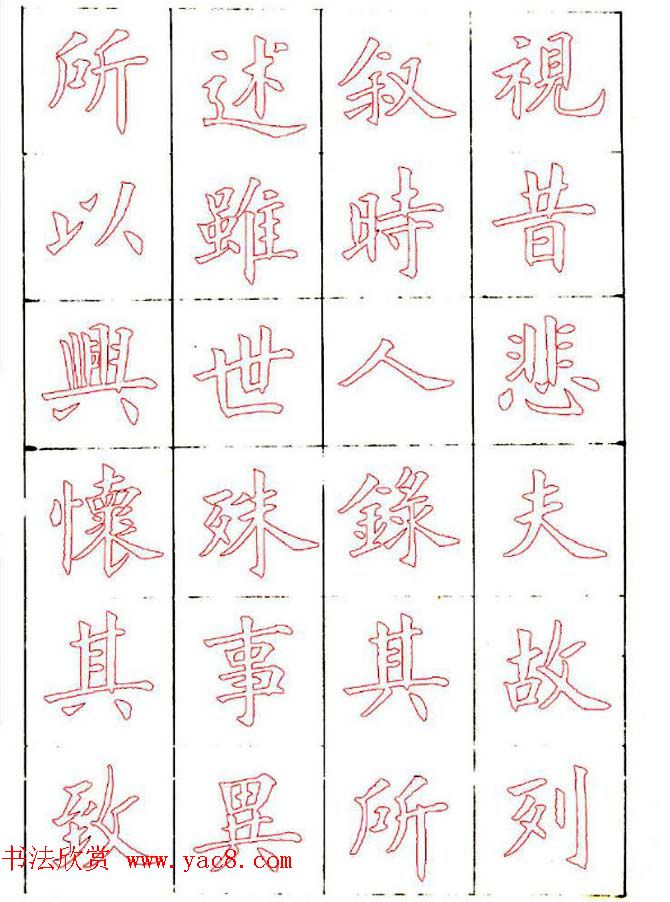 視昔悲夫故列
叙時人錄其所
述雖世殊事異
所以興懷其致
书法欣赏 www.yac8.com